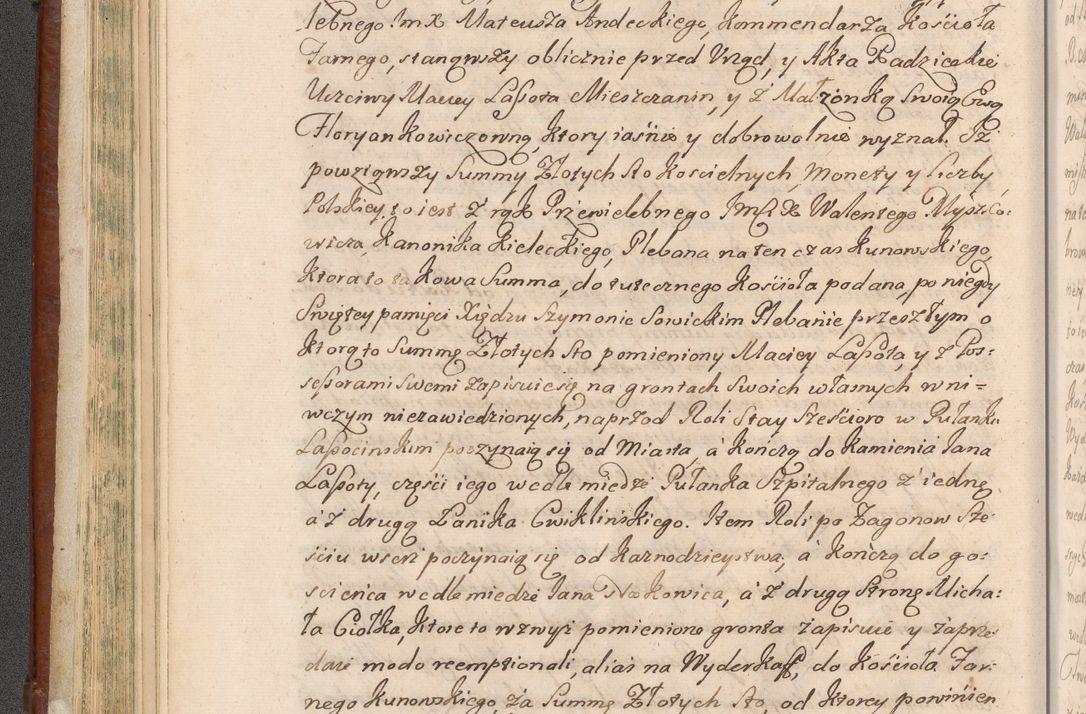 lebnego Jm X Mateusza Andeckiego, Kommendarza Kościoła
Farnego, stanąwszy oblicznie przed Urząd, y Akta Radzieckie
Uczciwy Maciey Laßota Mieszczanin, y z Małżonką Swoią Ewą
Floryankowiczowną, ktory iaśnie y dobrowolnie wyznał. Iż
powziąwszy Summy Złotych Sto Koscielnych, Monety y liczby
Polskiey, to iest z rąk Przewielebnego Jmśi X Walentego Myszko-
wicza, Kanonika Kieleckiego, Plebana na ten czas Kunowskiego,
Ktora to takowa Summa, do tutecznego Kościoła podana, po niegdy
Swiętey pamięci Xiędzu Szymonie Sowickim Plebanie przeszłym o
Ktorą to Summę Złotych Sto pomieniony Maciey Laßota, y z Pos=
seßorami swemi zapisuie się, na grontach Swoich własnych w ni=
wczym niezawiedzionych, naprzod Roli Stay Sześcioro w Pułanku
Laßocinskim poczynaią się od Miasta, à kończą do Kamienia Jana
Laßoty, części iego wedle miedze Pułanka Szpitalnego z iednę
a z drugą Łanika Cwiklińskiego. Item Roli po Zagonow Sze-
ściu wszerz poczynaią się od Kaznodzieystwa, à kończą do go=
scieńca wedle miedze Jana Nowkowica, à z drugą Stronę Micha=
ła Ciołka, Ktore to wzwyż pomienione gronta zapisuie y zaprze-
daie modo reemptionali, alias na Wyderkaff, do Kościoła Far-
nego Kunowskiego, za Summę Złotych Sto, od Ktorey powinien